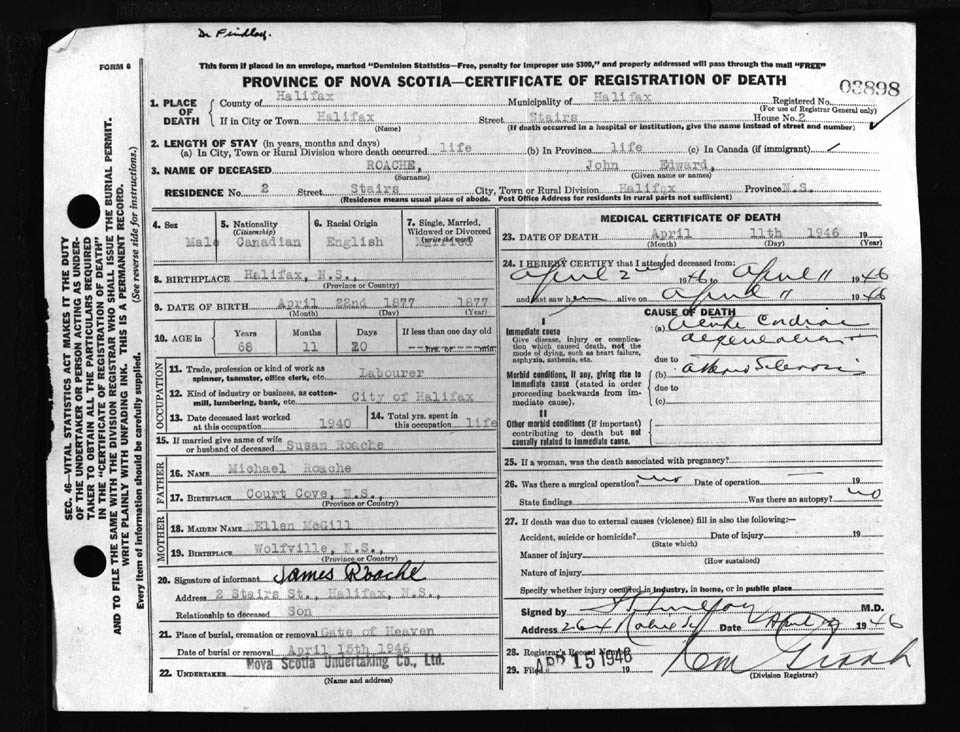 Dr Findlay.
FORM 6
This form if placed in an envelope, marked "Dominion Statistics—Free, penalty for improper use $300," and properly addressed will pass through the mail "FREE"
PROVINCE OF NOVA SCOTIA—CERTIFICATE OF REGISTRATION OF DEATH
03898
1. PLACE OF DEATH
County of Halifax Municipality of Halifax Registered No.
(For use of Registrar General only)
If in City or Town Halifax Street Stairs House No. 2
(Name) (If death occurred in a hospital or institution, give the name instead of street and number)
2. LENGTH OF STAY (in years, months and days)
(a) In City, Town or Rural Division where death occurred life (b) In Province life (c) In Canada (if immigrant)
3. NAME OF DECEASED ROACHE, John Edward,
(Surname) (Given name or names)
RESIDENCE No. 2 Street Stairs City, Town or Rural Division Halifax Province N.S.
(Residence means usual place of abode. Post Office Address for residents in rural parts not sufficient)
4. Sex 5. Nationality (Citizenship) 6. Racial Origin 7. Single, Married, Widowed or Divorced (write the word)
Male Canadian English Married
8. BIRTHPLACE Halifax, N.S.,
(Province or Country)
9. DATE OF BIRTH April 22nd 1877 1877
(Month) (Day) (Year)
10. AGE in Years Months Days If less than one day old
68 11 20 hrs. or min.
OCCUPATION
11. Trade, profession or kind of work as spinner, teamster, office clerk, etc. Labourer
12. Kind of industry or business, as cotton-mill, lumbering, bank, etc. City of Halifax
13. Date deceased last worked at this occupation 1940
14. Total yrs. spent in this occupation life
15. If married give name of wife or husband of deceased Susan Roache
FATHER
16. NAME Michael Roache
17. BIRTHPLACE Court Cove, N.S.,
(Province or Country)
MOTHER
18. MAIDEN NAME Ellen McGill
19. BIRTHPLACE Wolfville, N.S.,
(Province or Country)
20. Signature of informant James Roache
Address 2 Stairs St., Halifax, N.S.,
Relationship to deceased Son
21. Place of burial, cremation or removal Gate of Heaven
Date of burial or removal April 15th 1946
22. UNDERTAKER Nova Scotia Undertaking Co., Ltd.
(Name and address)
MEDICAL CERTIFICATE OF DEATH
23. DATE OF DEATH April 11th 1946 19
(Month) (Day) (Year)
24. I HEREBY CERTIFY that I attended deceased from:
April 2nd 1946 to April 11 1946
and last saw him alive on April 11 1946
CAUSE OF DEATH
I
Immediate cause
Give disease, injury or complication which caused death, not the mode of dying, such as heart failure, asphyxia, asthenia, etc.
(a) Acute Cardiac
degeneration
due to
Morbid conditions, if any, giving rise to immediate cause (stated in order proceeding backwards from immediate cause).
(b)
due to
(c)
II
Other morbid conditions (if important) contributing to death but not causally related to immediate cause.
25. If a woman, was the death associated with pregnancy?
26. Was there a surgical operation? no Date of operation 19
State findings Was there an autopsy? no
27. If death was due to external causes (violence) fill in also the following:—
Accident, suicide or homicide? Date of injury 19
(State which)
Manner of injury
(How sustained)
Nature of injury
Specify whether injury occurred in industry, in home, or in public place
Signed by M.D.
Address Date April 1946
28. Registrar's Record Number
29. Filed APR 15 1946 19
(Division Registrar)
SEC. 46—VITAL STATISTICS ACT MAKES IT THE DUTY
OF THE UNDERTAKER OR PERSON ACTING AS UNDER-
TAKER TO OBTAIN ALL THE PARTICULARS REQUIRED
IN THE "CERTIFICATE OF REGISTRATION OF DEATH"
AND TO FILE THE SAME WITH THE DIVISION REGISTRAR WHO SHALL ISSUE THE BURIAL PERMIT.
WRITE PLAINLY WITH UNFADING INK. THIS IS A PERMANENT RECORD.
Every item of information should be carefully supplied. (See reverse side for instructions.)